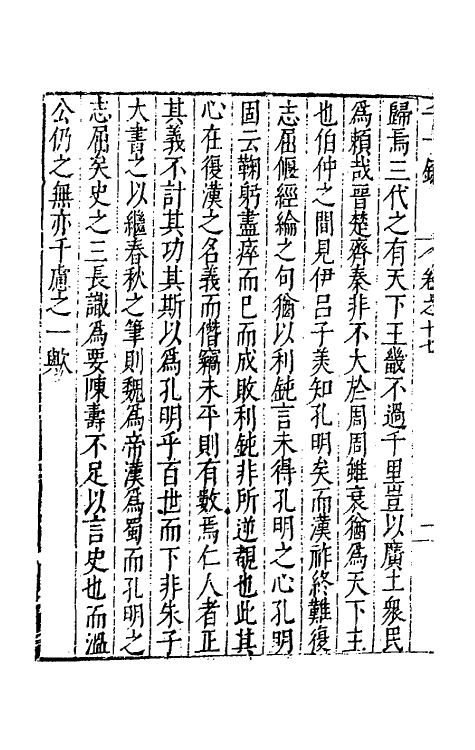 卷之十七
二
歸焉三代之有天下王畿不過千里豈以廣土衆民
為賴哉晉楚齊秦非不大於周周雖衰猶為天下王
也伯仲之間見伊呂子美知孔明矣而漢祚終難復
志屈偃經綸之句猶以利鈍言未得孔明之心孔明
固云鞠躬盡瘁而已而成敗利鈍非所逆覩也此其
心在復漢之名義而僭竊未平則有數焉仁人者正
其義不計其功其斯以為孔明乎百世而下非朱子
大書之以繼春秋之筆則魏為帝漢為蜀而孔明之
志屈矣史之三長識為要陳壽不足以言史也而溫
公仍之無亦千慮之一歟